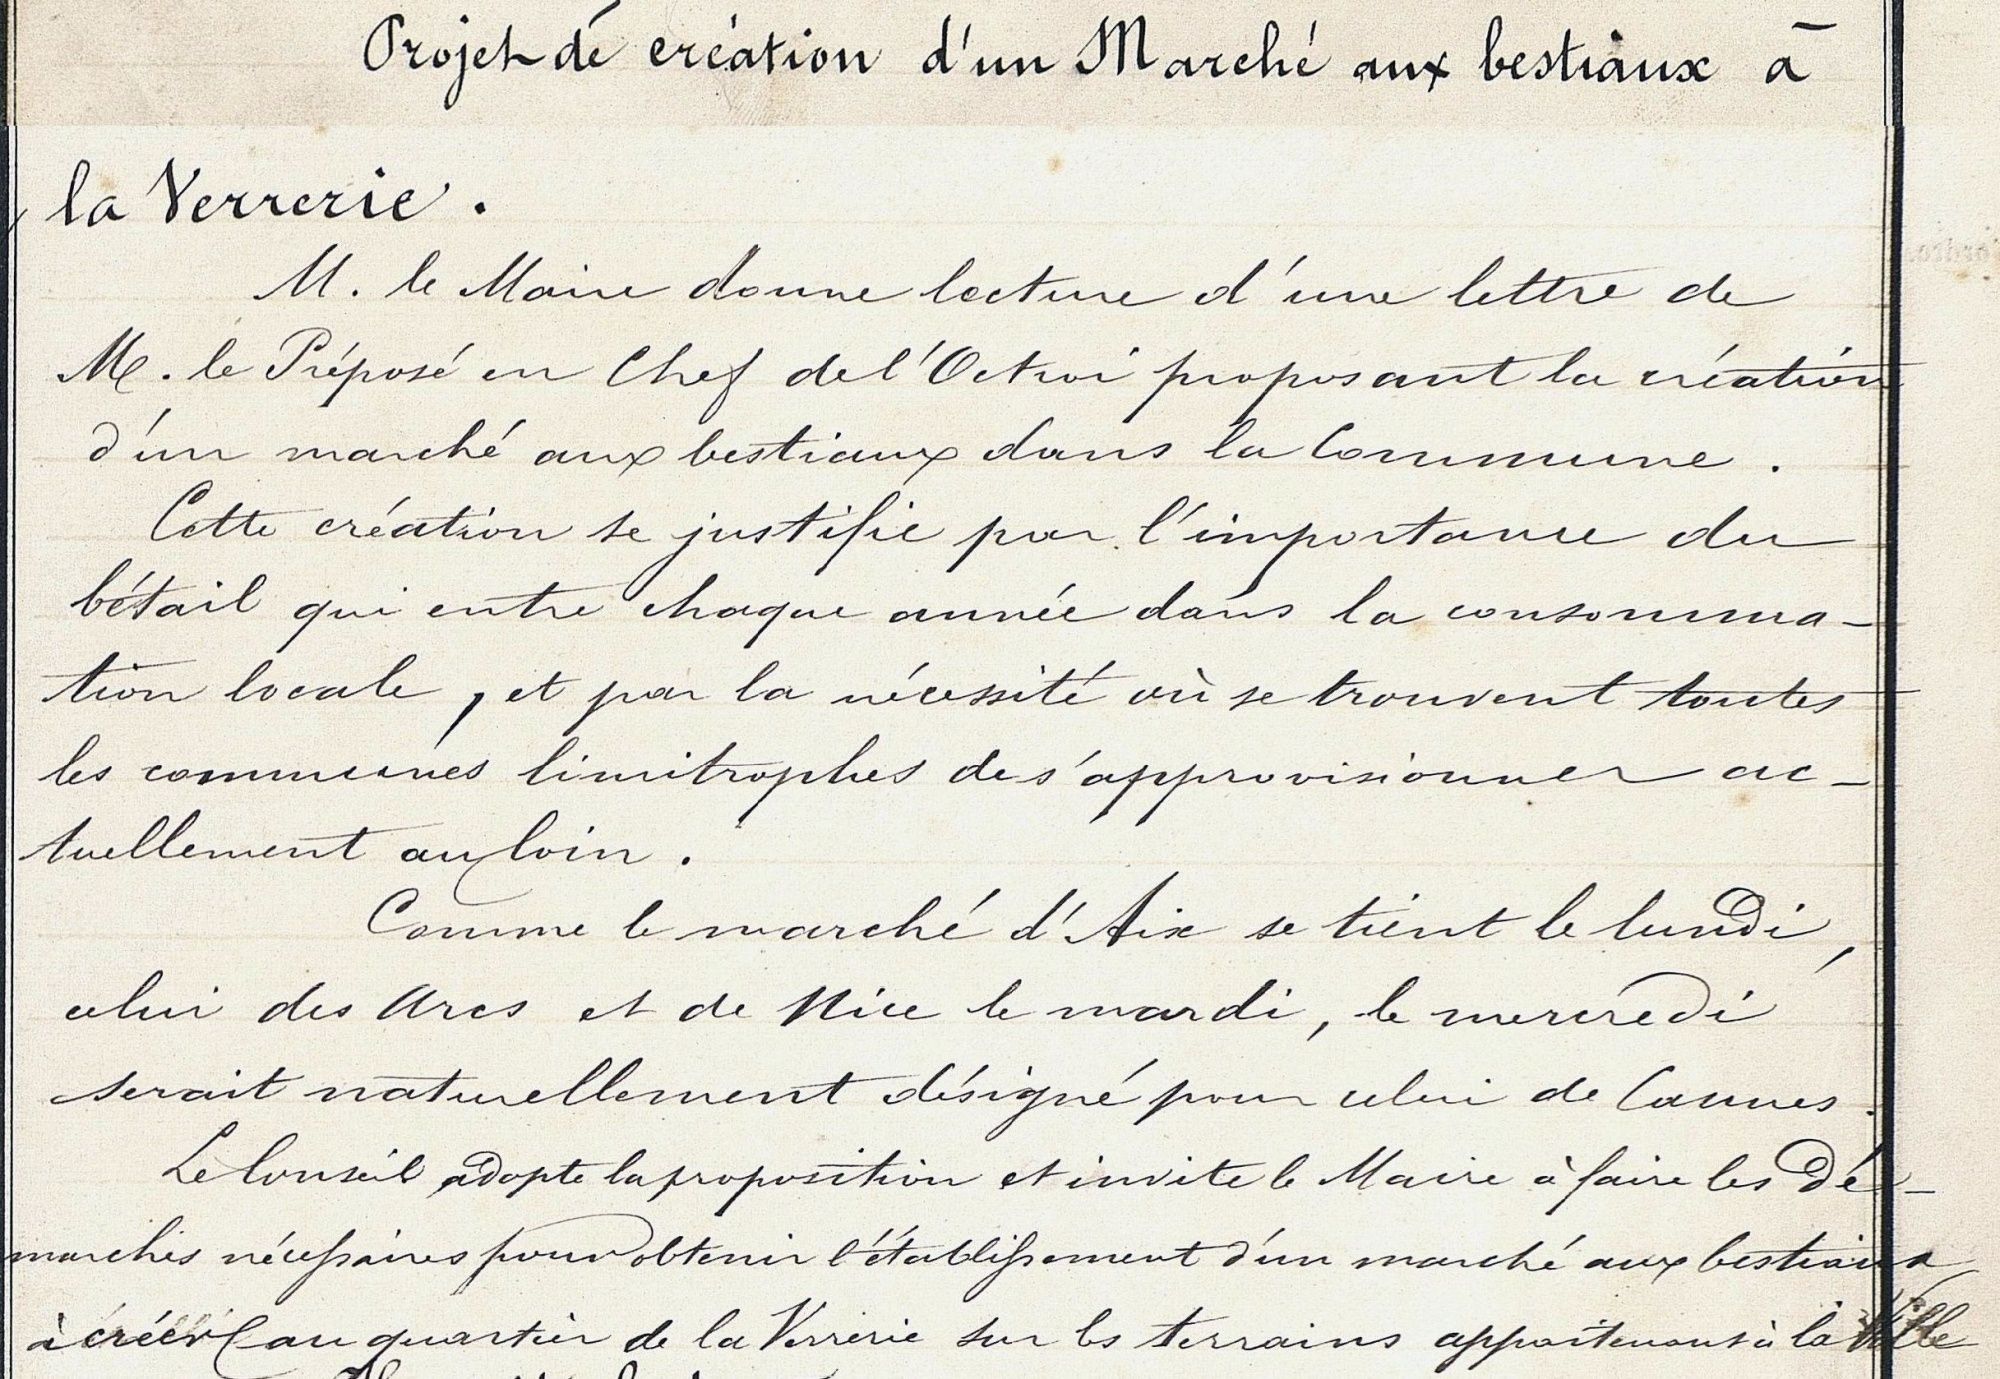 Projet de création d'un Marché aux bestiaux à
la Verrerie.
M. le Maire donne lecture d'une lettre de
M. le Préposé en Chef de l'Octroi proposant la création
d'un marché aux bestiaux dans la Commune.
Cette création se justifie par l'importance du
bétail qui entre chaque année dans la consomma-
tion locale, et par la nécessité où se trouvent toutes
les communes limitrophes de s'approvisionner ac-
tuellement au loin.
Comme le marché d'Aix se tient le lundi,
celui des Arcs et de Nice le mardi, le mercredi
serait naturellement désigné pour celui de Cannes.
Le Conseil adopte la proposition et invite le Maire à faire les dé-
marches nécessaires pour obtenir l'établissement d'un marché aux bestiaux
à créer au quartier de la Verrerie sur les terrains appartenant à la Ville